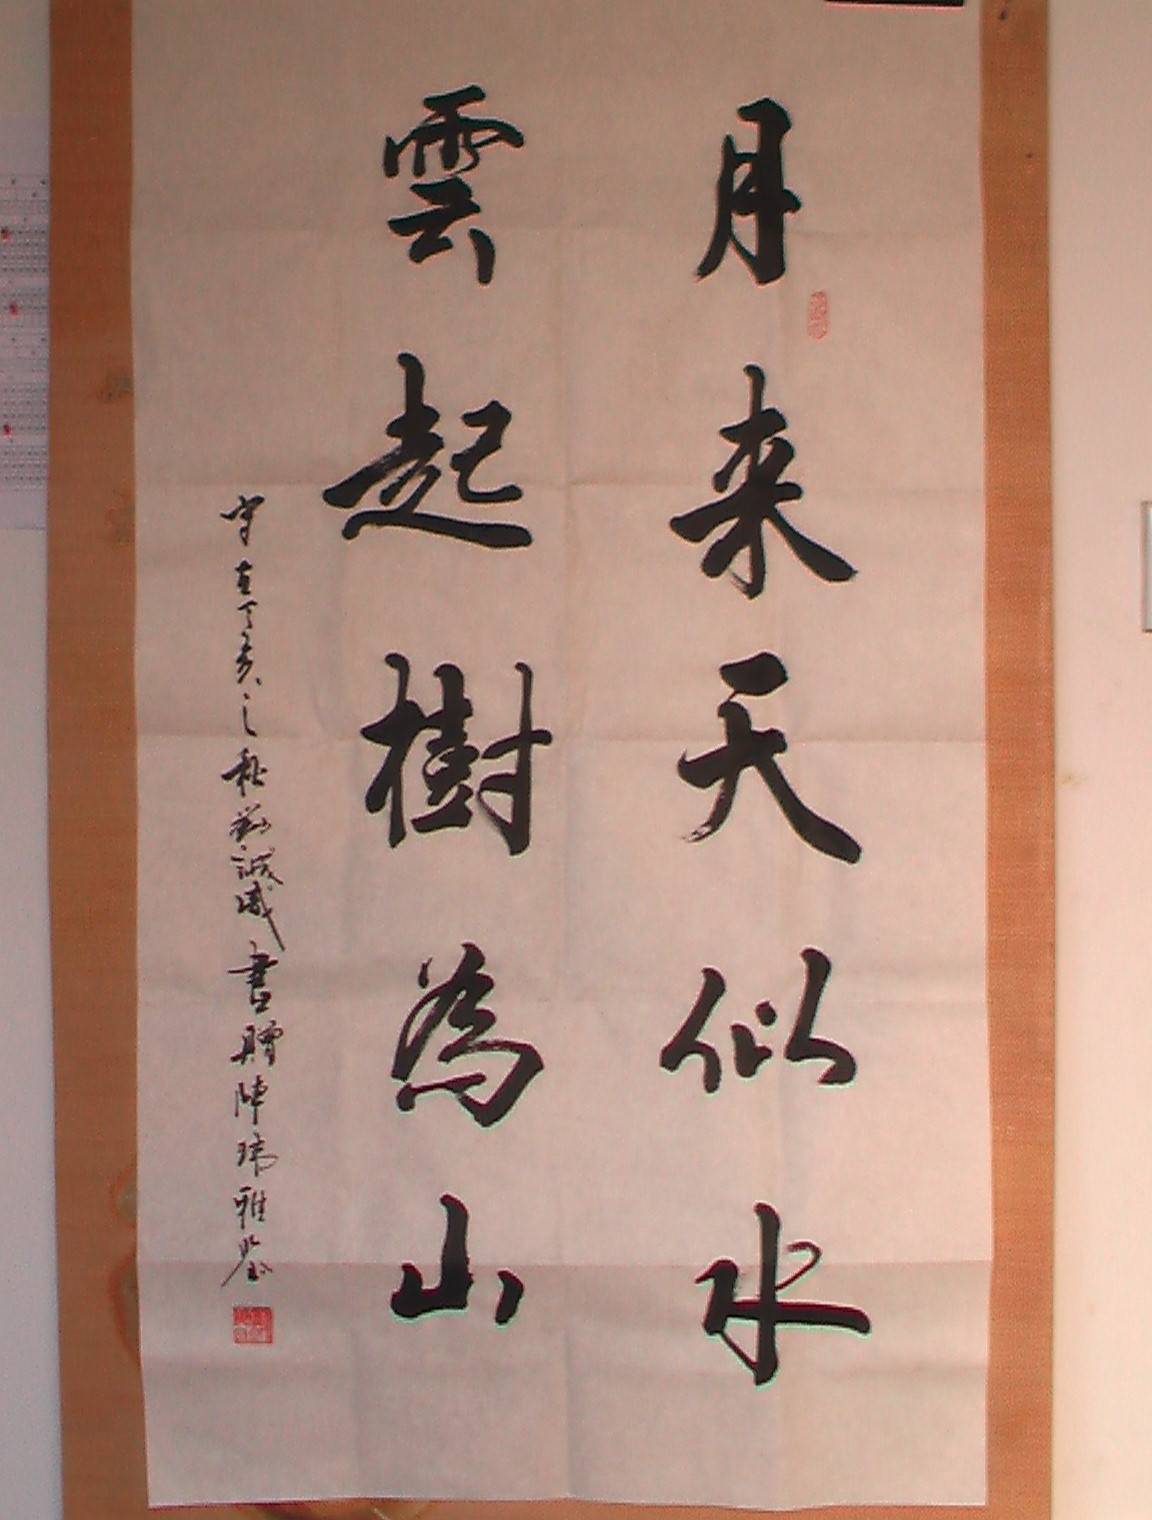 月来天似水
雲起樹為山
丁亥之秋 書贈陳瑋雅鑒